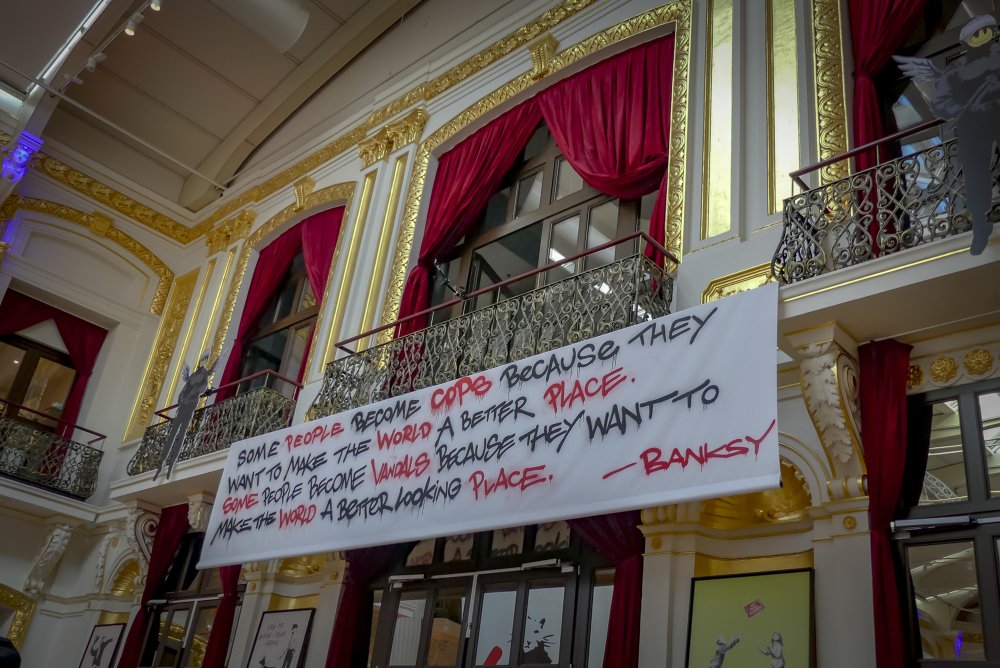 SOME PEOPLE BECOME COPS BECAUSE THEY
WANT TO MAKE THE WORLD A BETTER PLACE.
SOME PEOPLE BECOME VANDALS BECAUSE THEY WANT TO
MAKE THE WORLD A BETTER LOOKING PLACE.
—BANKSY